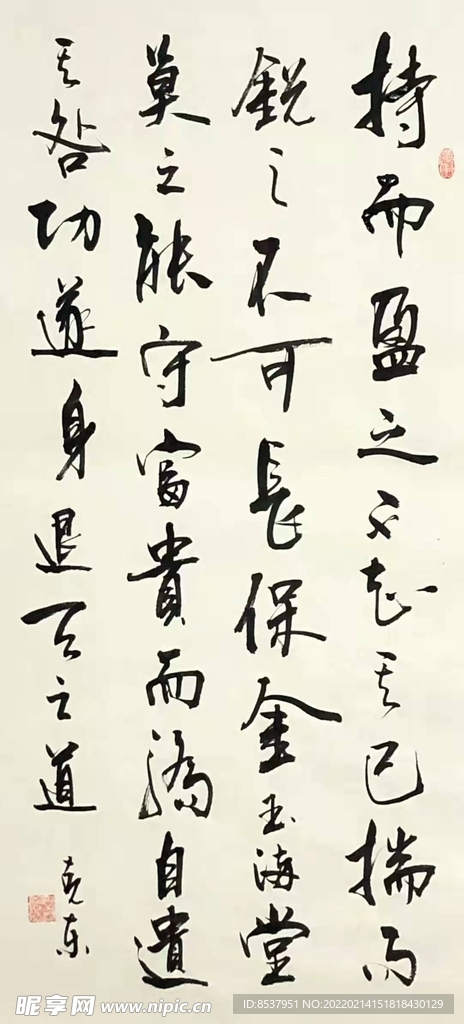 持而盈之不如其已揣而
銳之不可長保金玉滿堂
莫之能守富貴而驕自遺
其咎功遂身退天之道
克东
昵享网 www.nipic.cn
ID:8537951 NO:20220214151818430129